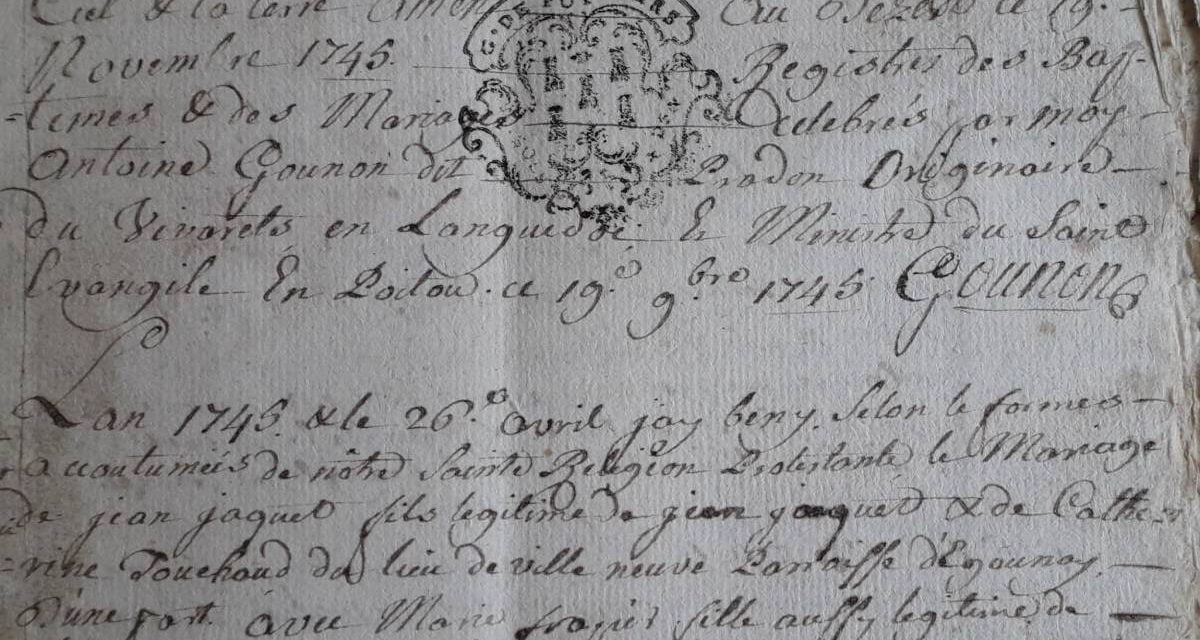 Ciel & la terre Amen Au Dezert ce 19.
G. DE POITIERS
Novembre 1745. Registres des Bap-
=temes & des Mariages Celebrés par moy
Antoine Gounon dit Pradon Originaire
du Vivarets en Languedoc Et Ministre du Saint
Evangile En Poitou. ce 19.e 9.bre 1745. Gounon
Lan 1745. & le 26.e avril jay beny Selon le formes
accoutumeés de nôtre Sainte Religion Protestante le Mariage
de jean jaquet fils legitime de jean jaquet & de Cathe-
=rine Touchaud du lieu de ville neuve Parroisse d'Exounay
d'une part avec Marie frapier fille aussy legitime de